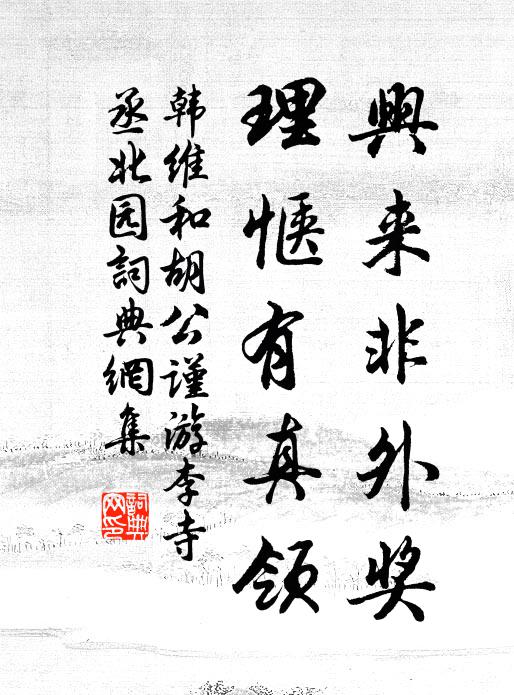 興来非外奖
理惬有真领
韩維和胡公谨游李寺
丞北园詞典網集
詞典网印